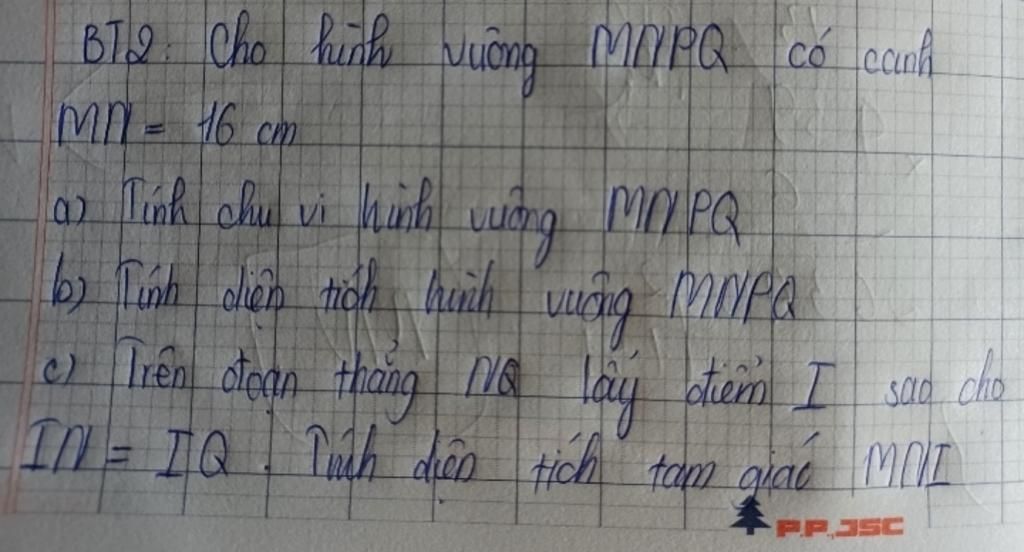 BT2: Cho hình vuông MNPQ có cạnh
MN = 16 cm
a) Tính chu vi hình vuông MNPQ
b) Tính diện tích hình vuông MNPQ
c) Trên đoạn thẳng NQ lấy điểm I sao cho
IN = IQ. Tính diện tích tam giác MNI
P.P.,JSC